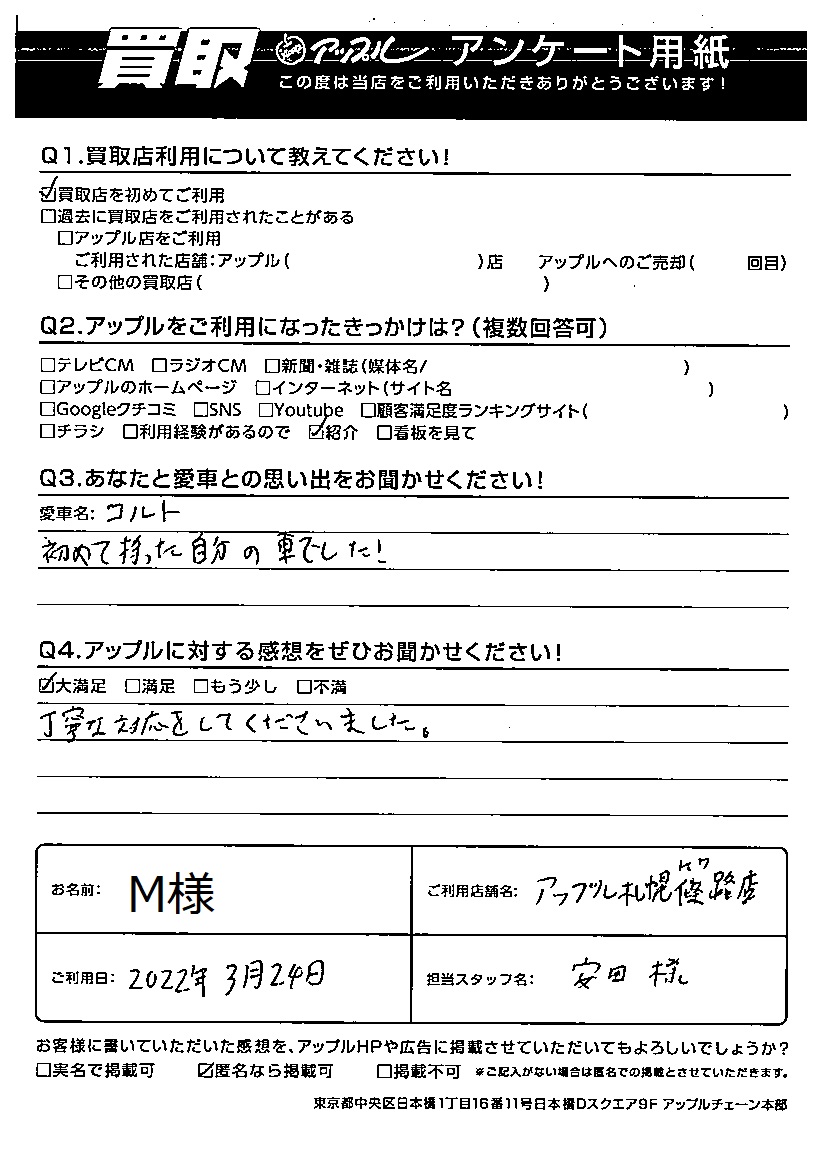 買取 アップル アンケート用紙
この度は当店をご利用いただきありがとうございます!
Q1.買取店利用について教えてください!
☑買取店を初めてご利用
□過去に買取店をご利用されたことがある
□アップル店をご利用
ご利用された店舗:アップル( )店 アップルへのご売却( 回目)
□その他の買取店( )
Q2.アップルをご利用になったきっかけは?(複数回答可)
□テレビCM □ラジオCM □新聞・雑誌(媒体名/ )
□アップルのホームページ □インターネット(サイト名 )
□Googleクチコミ □SNS □Youtube □顧客満足度ランキングサイト( )
□チラシ □利用経験があるので ☑紹介 □看板を見て
Q3.あなたと愛車との思い出をお聞かせください!
愛車名: コルト
初めて持った自分の車でした!
Q4.アップルに対する感想をぜひお聞かせください!
☑大満足 □満足 □もう少し □不満
丁寧な対応をしてくださいました。
お名前: M様
ご利用店舗名: アップル札幌 路店
ご利用日: 2022年3月24日
担当スタッフ名: 安田 様
お客様に書いていただいた感想を、アップルHPや広告に掲載させていただいてもよろしいでしょうか?
□実名で掲載可 ☑匿名なら掲載可 □掲載不可 ※ご記入がない場合は匿名での掲載とさせていただきます。
東京都中央区日本橋1丁目16番11号日本橋Dスクエア9F アップルチェーン本部